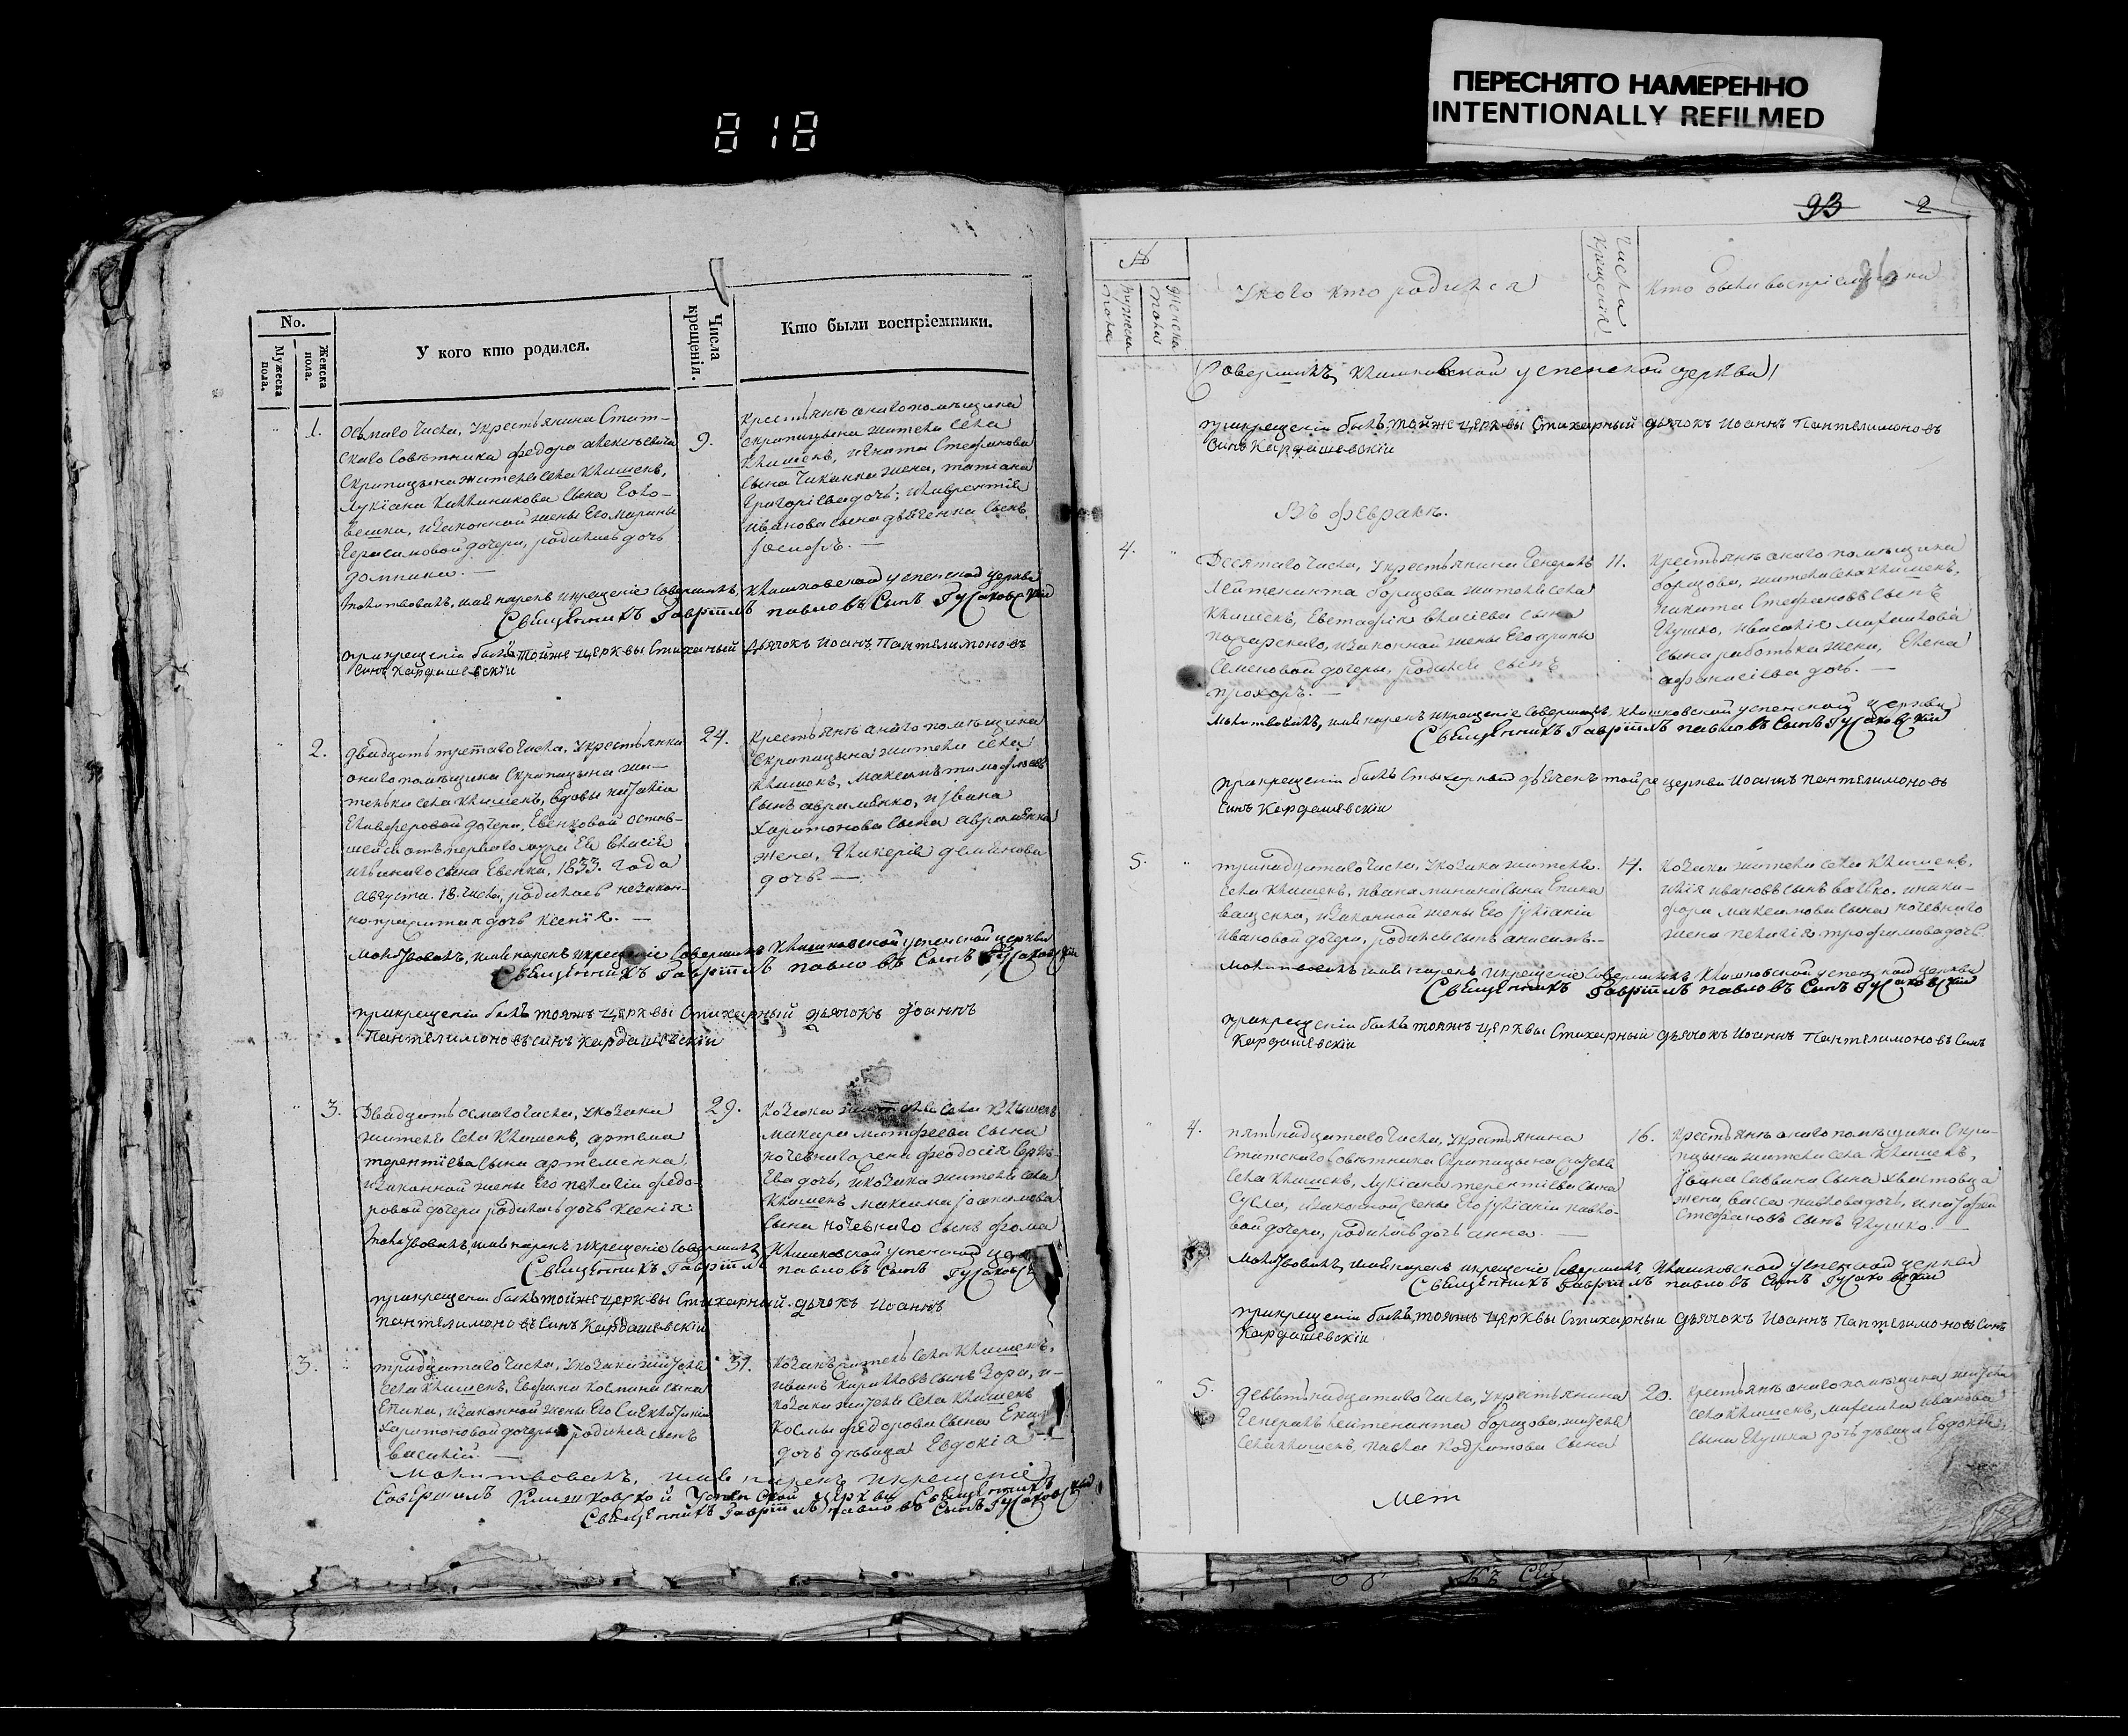 818
ПЕРЕСНЯТО НАМЕРЕННО
INTENTIONALLY REFILMED
No.
Мужеска пола.
Женска пола.
У кого кто родился.
Числа крещенія.
Кто были воспріемники.
1.
Осьмаго числа, у крестьянина Стат-
скаго Советника Федора Алексеевича
Скрипицына жителя села Клишекъ,
Лукіана Калиникова сына Голо-
вешка, и законной жены его Марины
Герасимовой дочери, родилась дочь
Домникия. —
9.
Крестьянъ онаго помещика
Скрипицына жители села
Клишекъ, Игната Стефанова
сына жена, Татіана
Григоріева дочь; и Лаврентія
Иванова сына сынъ
Іосифъ. —
Молитвовалъ, имя нарекъ и крещеніе совершилъ, Клишковской успенской церкви
Священникъ Гавріилъ Павловъ Сынъ Гусаковскій
при крещеніи былъ тойже церквы Стихарный дьячокъ Иоаннъ Пантелимоновъ
Синъ Кардашевскіи
2.
двадцать третаго числа, у крестьянки
онаго помещика Скрипицына жи-
тельки села Клишекъ, вдовы
дочери, Евенковой остав-
шейся отъ перваго мужа Ея Власія
сына Евенка, 1833. года
Августа. 18. числа, родилась незакон-
но прижитая дочь Ксенія. —
24.
Крестьянъ онаго помещика
Скрипицына жители села
Клишекъ, Максимъ Тимофеевъ
сынъ Авраменко, и Ивана
Харитонова сына Авраменка
жена, Гликерія Деминова
дочь. —
Молитвовалъ, имя нарекъ и крещеніе совершилъ Клишковской успенской церкви
Священникъ Гавріилъ Павловъ Сынъ Гусаковскій
при крещеніи былъ тояжъ церквы Стихарный дьячокъ Иоаннъ
Пантелимоновъ синъ Кардашевскіи
3.
Двадцать осмаго числа, у козака
жителя села Клишекъ, Артема
Терентіева сына Артеменка,
и законной жены его Пелагіи Федо-
ровой дочери родилась дочь Ксенія
29.
Козака жителя села Клишекъ
Макара Матфеева сына
Ночевнаго жена Феодосія
дочь, и козака жителя села
Клишекъ Максима Іоакимова
сына Ночевнаго сынъ Фома
Молитвовалъ, имя нарекъ и крещеніе совершилъ, Клишковской успенской
Священникъ Гавріилъ Павловъ Сынъ
при крещеніи былъ тойже церквы Стихарный дьячокъ Иоаннъ
Пантелимоновъ Синъ Кардашевскіи
3.
тридцатаго числа, у козака жителя
села Клишекъ, Космина сына
Епика, и законной жены его
Харитоновой дочери родился сынъ
Василій. —
31.
Козакъ житель села Клишекъ,
Иванъ Кириловъ сынъ Зора, и
козака жителя села Клишекъ
Космы Федорова сына
дочь девица Евдокіа —
Молитвовалъ, имя нарекъ и крещеніе
Совершилъ Клишковской Успенской церкви Священникъ
Священникъ Гавріилъ Павловъ Сынъ Гусаковскій
93 2
№
мужеска пола
женска пола
У кого кто родился
Числа крещенія
Кто были воспріемники
Совершилъ, Клишковской успенской церкви
при крещеніи былъ тойже церквы Стихарный дьячокъ Иоаннъ Пантелимоновъ
Синъ Кардашевскіи
Въ феврале.
4.
Десятаго числа, у крестьянина Генералъ
Лейтенанта Борщова жителя села
Клишекъ, Евстафія Власіева сына
и законной жены его Ирины
Семеновой дочери, родился сынъ
Прохоръ. —
11.
Крестьянъ онаго помещика
Борщова, жители села Клишекъ,
Никита Стефановъ сынъ
Глушко, и
сына жена, Елена
Афанасіева дочь. —
Молитвовалъ, имя нарекъ и крещеніе совершилъ, Клишковской успенской церкви
Священникъ Гавріилъ Павловъ Сынъ Гусаковскій
при крещеніи былъ Стихарный дьячекъ тойже церкви Иоаннъ Пантелимоновъ
Синъ Кардашевскіи
5.
тринадцатаго числа, у козака жителя
села Клишекъ, Ивана сына
и законной жены его Іуліаніи
Ивановой дочери, родился сынъ Анисимъ. —
14.
Козаки жители села Клишекъ,
Илія Ивановъ сынъ и Ники-
фора Максимова сына Ночевнаго
жена Пелагія Трофимова дочь
Молитвовалъ имя нарекъ и крещеніе совершилъ Клишковской успенской церкви
Священникъ Гавріилъ Павловъ Сынъ Гусаковскій
при крещеніи былъ тояжъ церквы Стихарный дьячокъ Иоаннъ Пантелимоновъ Синъ
Кардашевскіи
4.
пятьнадцатаго числа, у крестьянина
Статскаго Советника Скрипицына жителя
села Клишекъ, Лукіана Терентіева сына
Сусла, и законной жены его Іуліаніи Павло-
вой дочери, родилась дочь Анна. —
16.
Крестьянъ онаго помещика Скри-
пицына жители села Клишекъ,
Ивана Саввина сына
жена Васса Павлова дочь, и
Стефановъ сынъ Глушко. —
Молитвовалъ, имя нарекъ и крещеніе совершилъ, Клишковской успенской церкви
Священникъ Гавріилъ Павловъ Сынъ Гусаковскій
при крещеніи былъ тояжъ церквы Стихарныи дьячокъ Иоаннъ Пантелимоновъ Синъ
Кардашевскіи
5.
девятьнадцатаго числа, у крестьянина
Генералъ Лейтенанта Борщова, жителя
села Клишекъ, Павла Кодратова сына
20.
Крестьянъ онаго помещика жителя
села Клишекъ, Иванова
сына Глушка дочь девица Евдокія.
Мет